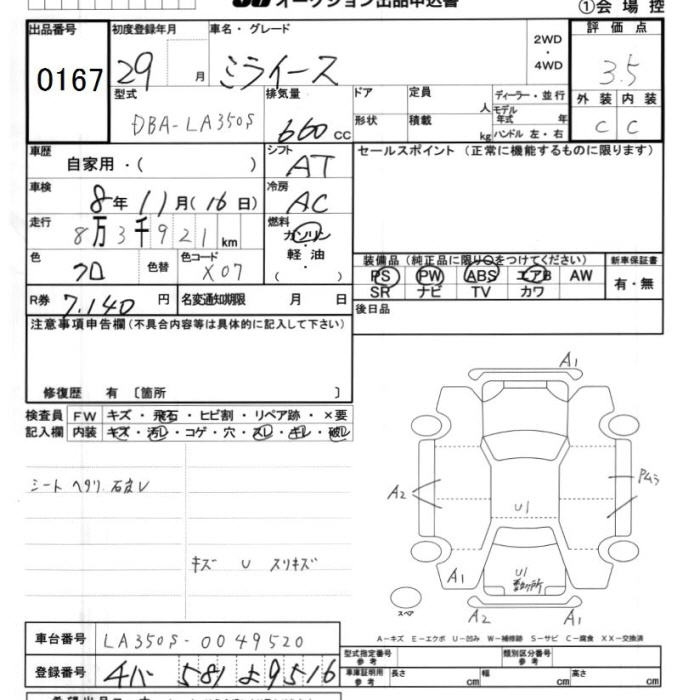 オークション出品申込書
①会場控
出品番号 初度登録年月 車名・グレード 2WD・4WD 評価点
0167 29 月 ミライース 3.5
型式 排気量 ドア 定員 人 ディーラー・並行 外装 内装
DBA-LA350S 660cc 形状 積載 kg モデル年式 年 ハンドル 左・右 C C
車歴 シフト セールスポイント (正常に機能するものに限ります)
自家用・( ) AT
車検 冷房
8年11月(16日) AC
走行 燃料
8万3千921km ガソリン・軽油 ( )
色 色替 色コード 装備品(純正品に限り○をつけてください) 新車保証書
クロ X07 PS PW ABS エアB AW 有・無
SR ナビ TV カワ
R券 7,140円 名変通知期限 月 日 後日品
注意事項申告欄(不具合内容等は具体的に記入して下さい)
修復歴 有 〔箇所 〕
検査員 FW キズ・飛石・ヒビ割・リペア跡・×要
記入欄 内装 キズ・汚レ・コゲ・穴・スレ・キレ・破レ
シート ヘタリ
キズ U スリキズ
A1
A2
U1
A1
U1
スペア
A2
A1
A-キズ E-エクボ U-凹み W-補修跡 S-サビ C-腐食 XX-交換済
車台番号 LA350S-0049520
登録番号 581 よ 9516
型式指定番号 参考 類別区分番号 参考
車庫証明用 参考 長さ cm 幅 cm 高さ cm
希望出品コーナー